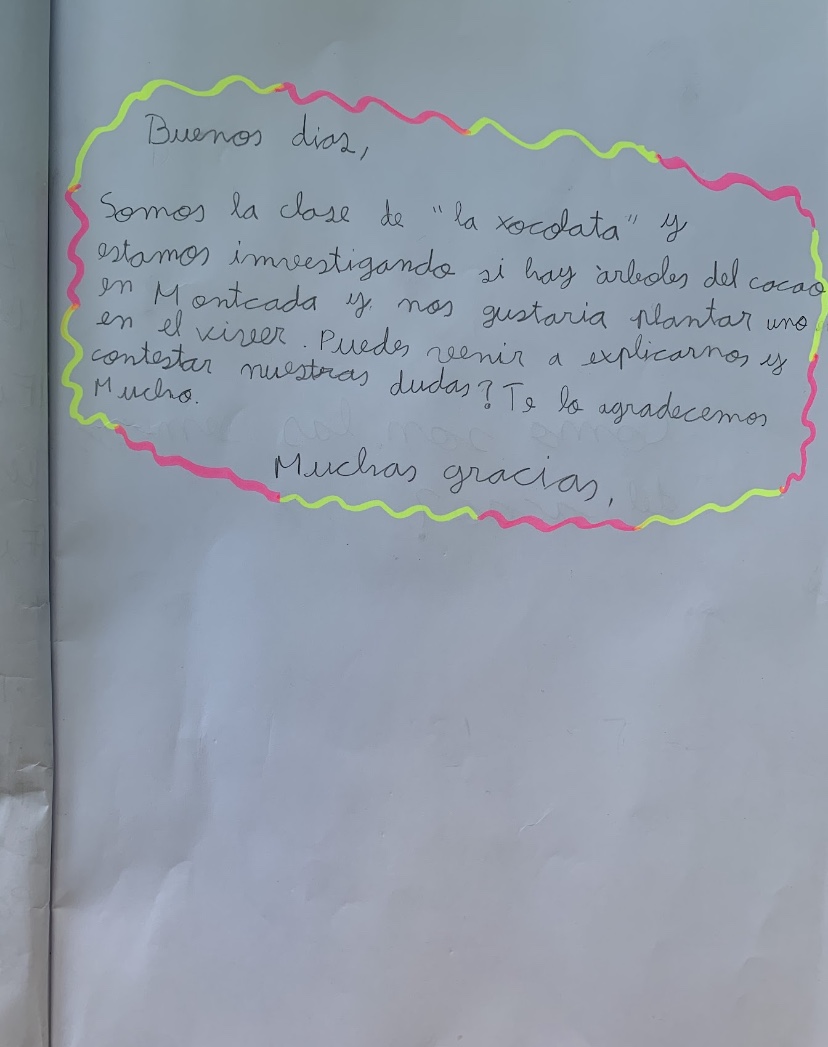 Buenos dias,
Somos la clase de "la xocolata" y
estamos investigando si hay àrboles del cacao
en Montcada y nos gustaria plantar uno
en el viver. Puedes venir a explicarnos y
contestar nuestras dudas? Te lo agradecemos
Mucho.
Muchas gracias,